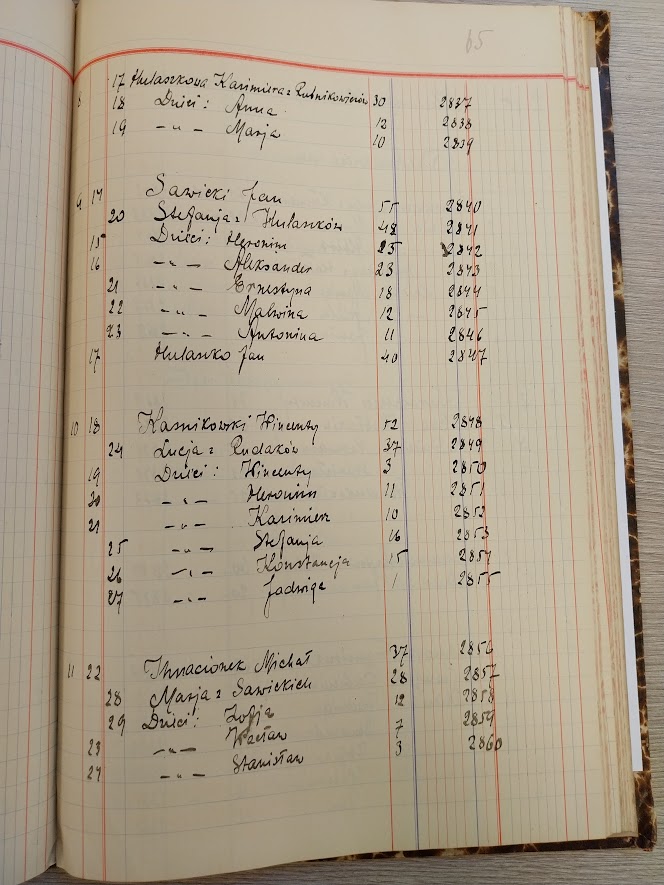 65
17 Hułaszkowa Kazimiera z Rutnikowiczów 30 2837
18 Dzieci: Anna 12 2838
19 -"- Marja 10 2839
9 14 Sawicki Jan 55 2840
20 Stefanja z Hułaszków 48 2841
15 Dzieci: Heronim 25 2842
16 -"- Aleksander 23 2843
21 -"- Ernestyna 18 2844
22 -"- Malwina 12 2845
23 -"- Antonina 11 2846
17 Hułaszko Jan 40 2847
10 18 Kasnikowski Wincenty 52 2848
24 Łucja z Rudaków 37 2849
19 Dzieci: Wincenty 3 2850
20 -"- Heronim 11 2851
21 -"- Kazimierz 10 2852
25 -"- Stefanja 16 2853
26 -"- Konstancja 15 2854
27 -"- Jadwiga 1 2855
11 22 Ihnacionek Michał 37 2856
28 Marja z Sawickich 28 2857
29 Dzieci: Zofja 12 2858
23 -"- Wacław 7 2859
24 -"- Stanisław 3 2860